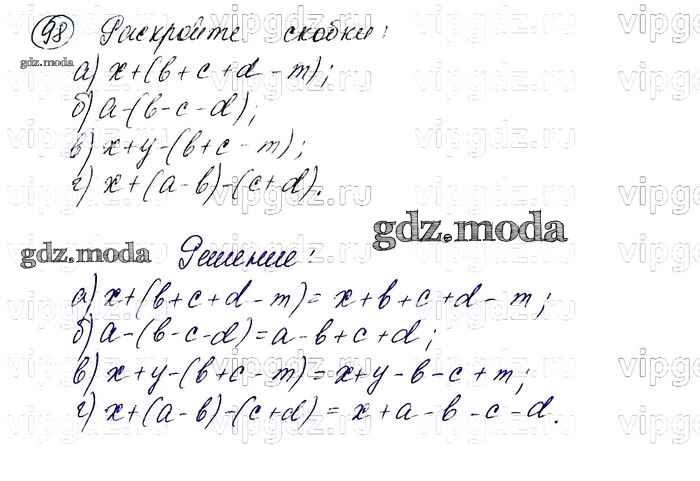 98 Раскройте скобки:
gdz.moda
а) x+(b+c+d-m);
б) a-(b-c-d);
в) x+y-(b+c-m);
г) x+(a-b)-(c+d).
gdz.moda
gdz.moda Решение:
а) x+(b+c+d-m)=x+b+c+d-m;
б) a-(b-c-d)=a-b+c+d;
в) x+y-(b+c-m)=x+y-b-c+m;
г) x+(a-b)-(c+d)=x+a-b-c-d.